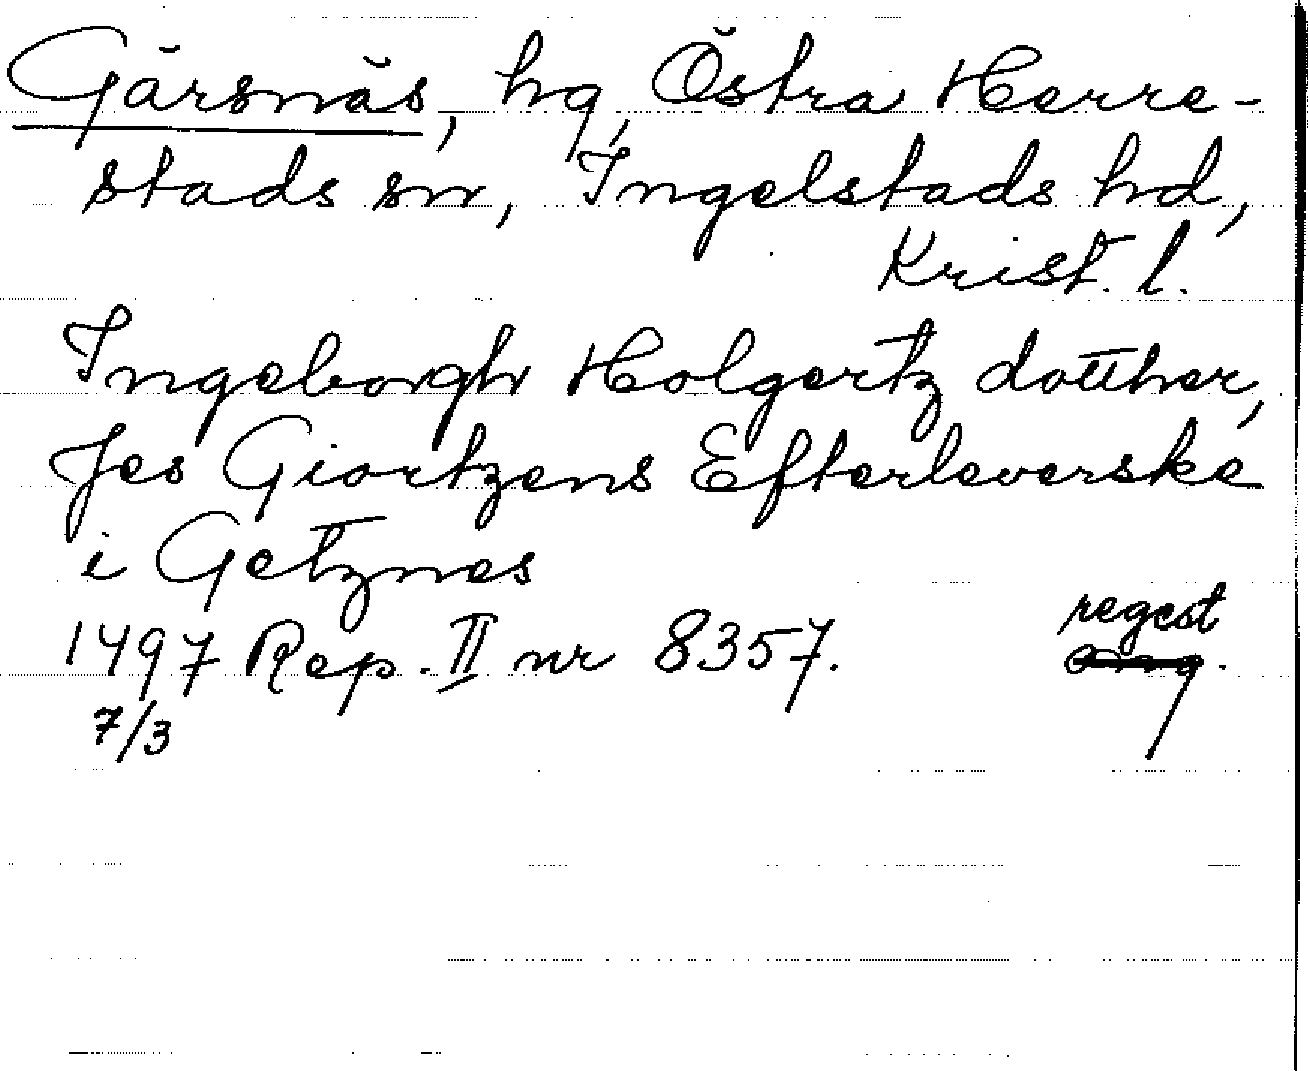 Gärsnäs, hg, Östra Herre-
stads sn, Ingelstads hd,
Krist. l.
Ingeborgh Holgertz dotther,
Jes Giortzens Efterleverske
i Getznes
regest
1497 Rep. II nr 8357.
7/3